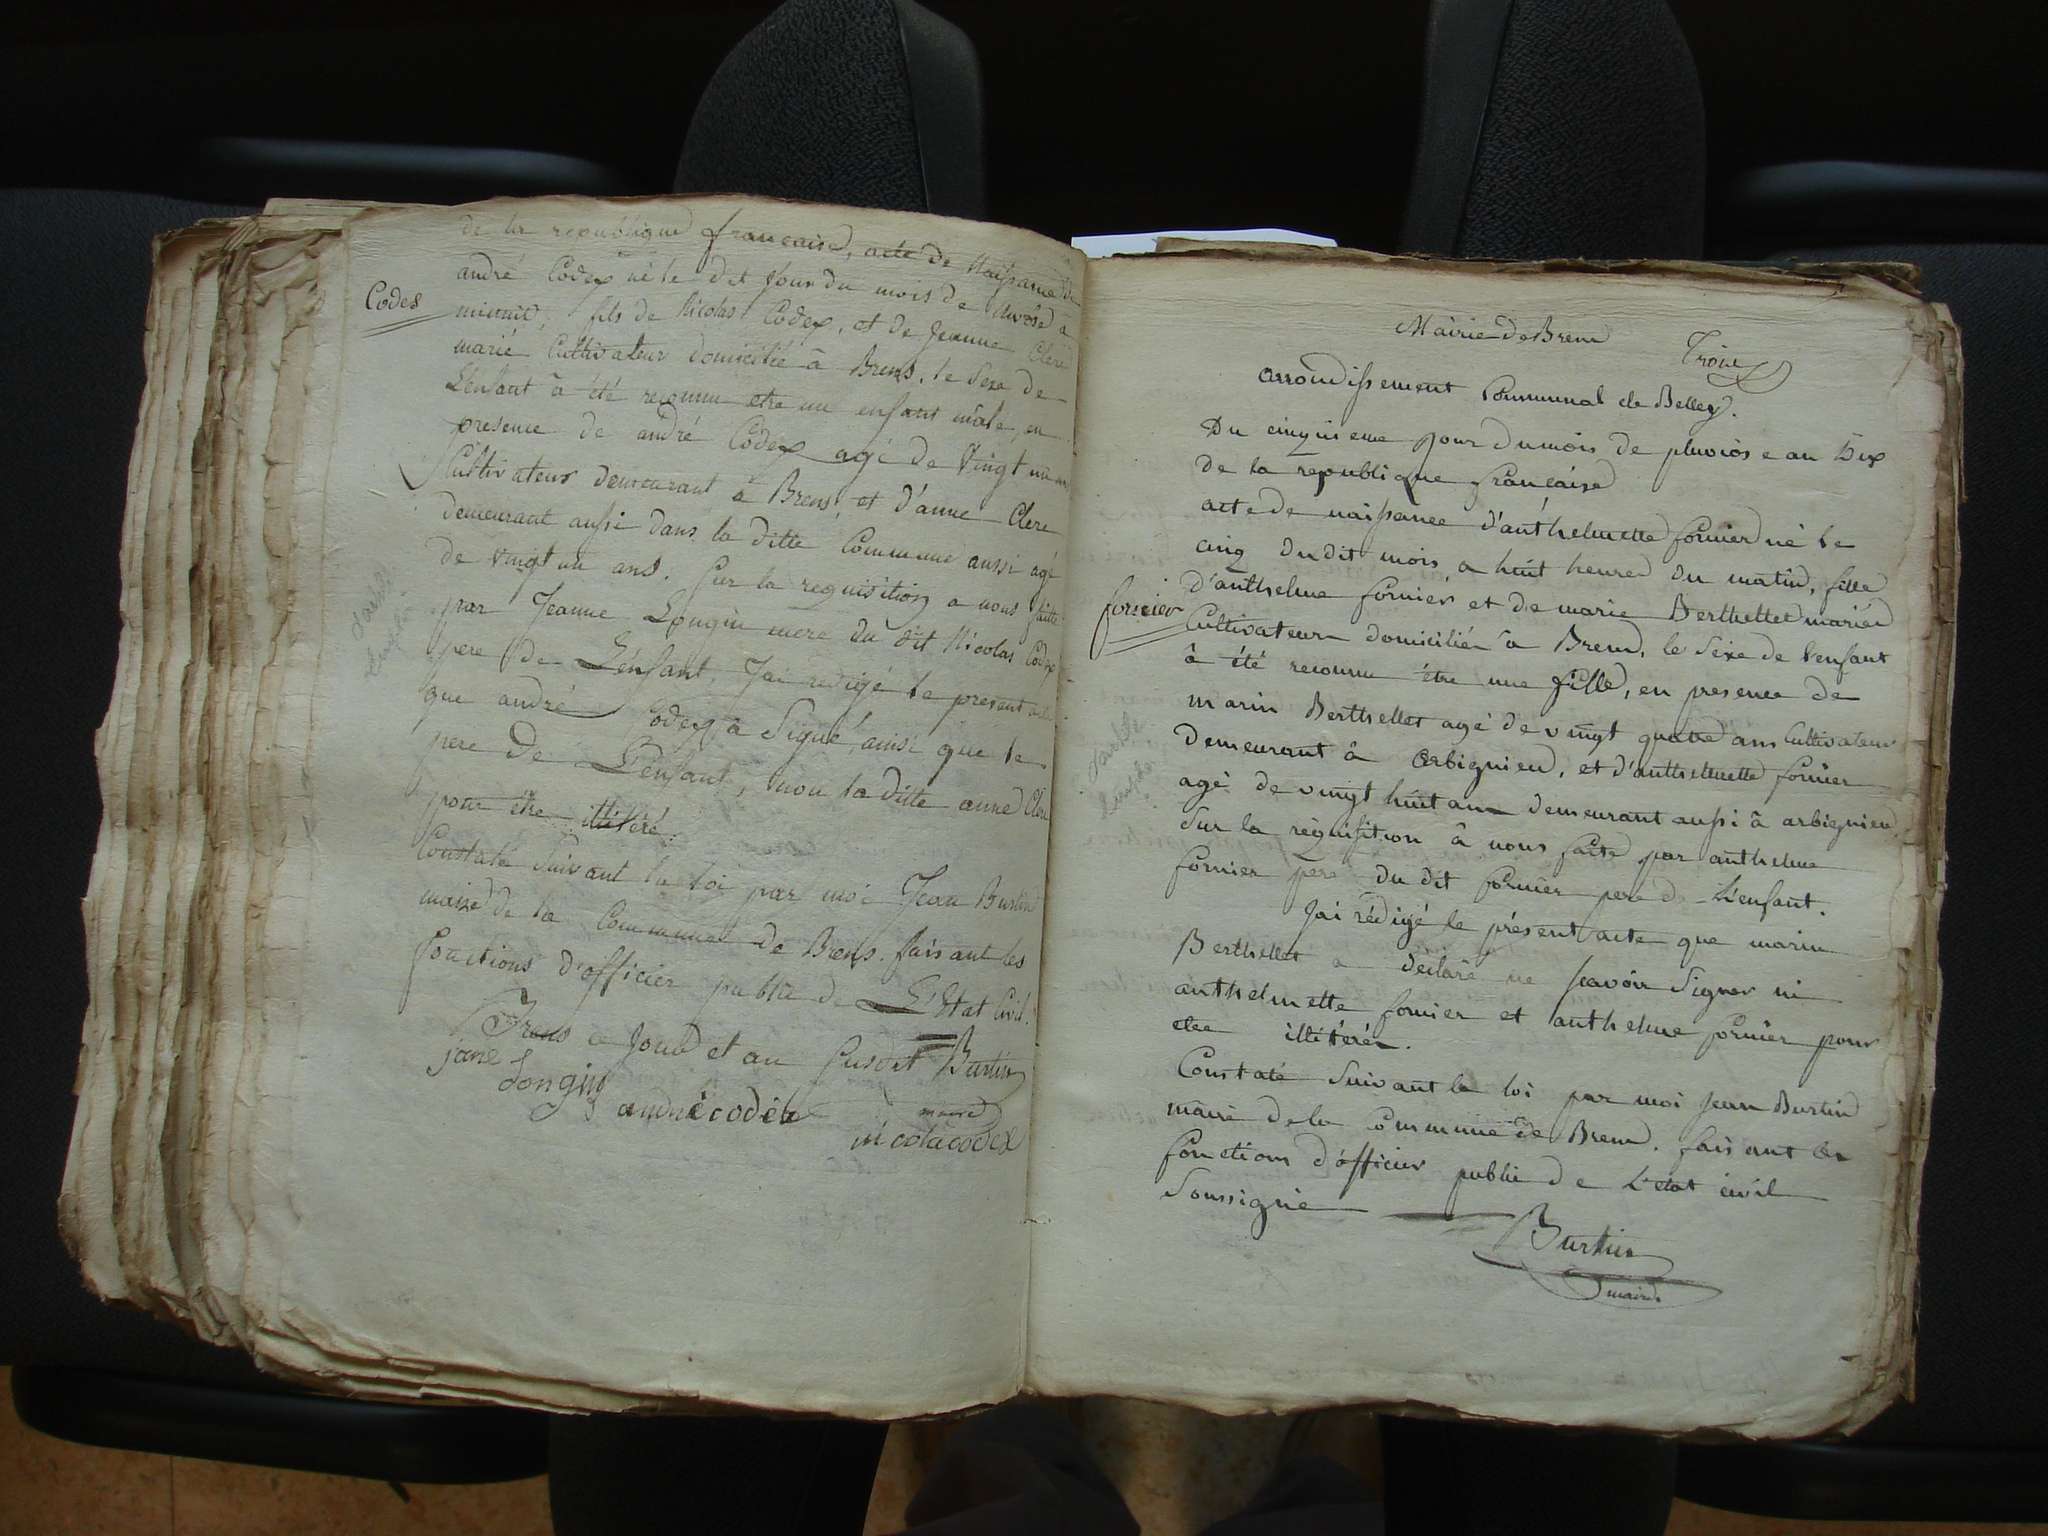 de la republique française, acte de Naissance de
andré Codex né le dit Jour du mois de nivose à
Codex
minuit, fils de Nicolas Codex, et de Jeanne Clerc
marié Cultivateur domicilié à Brens, le Sexe de
L'enfant à été reconnu etre un enfant mâle, en
presence de andré Codex agé de Vingt un ans
Cultivateur demeurant à Brens, et d'anne Clerc
demeurant aussi dans la ditte Commune aussi agé
de vingt un ans. Sur la requisition a nous faitte
par Jeanne Longin mere du dit Nicolas Codex
pere de L'énfant, J'ai redigé le present acte
que andré Codex à Signé, ainsi que le
pere de L'énfant, non la ditte anne Clerc
pour être illitéré.
Constaté Suivant la loi par moi Jean Burtin
maire de la Commune de Brens. faisant les
fonctions d'officier public de L'Etat Civil.
Brens ce Jour et an Susdit Burtin
jane Longin
maire
andré codex
nicola codex
Mairie de Brens
Troise
arrondissement Communal de Belley.
Du cinquieme jour du mois de pluviose an Dix
de la republique française
acte de naissance d'anthelmette fornier né le
cinq du dit mois a huit heures du matin, fille
d'anthelme fornier et de marie Berthellet mariés
fornier
Cultivateurs domiciliés à Brens, le Sexe de l'enfant
à été reconnu être une fille, en presence de
marin Berthellet agé de vingt quatre ans Cultivateur
demeurant à arbignieu, et d'anthelmette fornier
agé de vingt huit ans demeurant aussi à arbignieu
Sur la réquisition à nous faite par anthelme
fornier pere du dit fornier pere de L'enfant.
J'ai rédigé le présent acte que marin
Berthellet a déclaré ne scavoir Signer ni
anthelmette fornier et anthelme fornier pour
etre illitérés.
Constaté Suivant la loi par moi Jean Burtin
maire de la Commune de Brens. faisant les
fonctions d'officier public de L'état civil
Soussigné
Burtin
maire